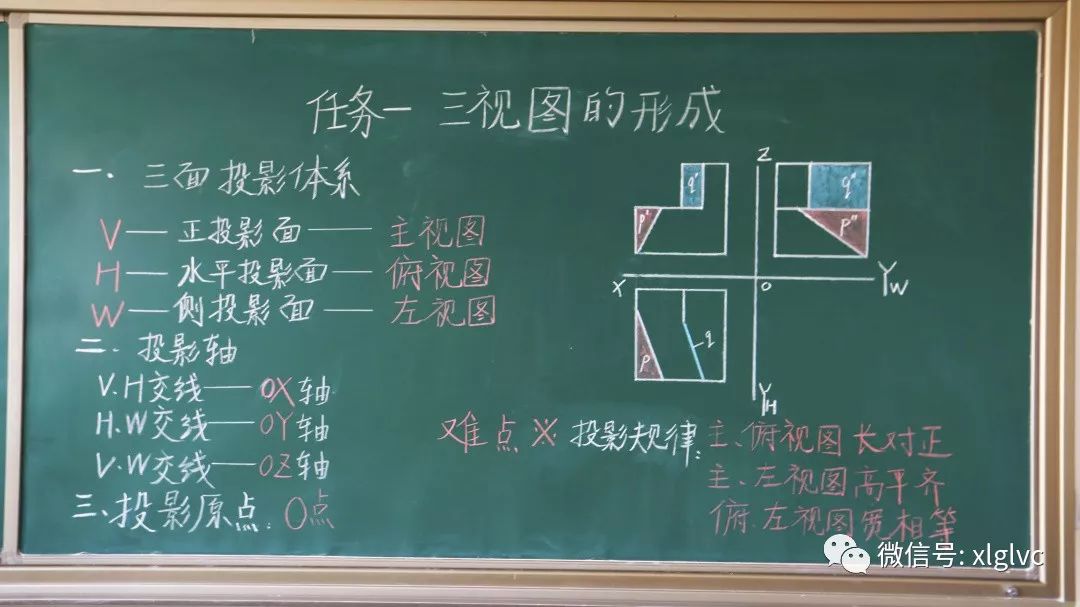 任务一 三视图的形成
一. 三面投影体系
V — 正投影面 — 主视图
H — 水平投影面 — 俯视图
W — 侧投影面 — 左视图
二. 投影轴
V.H交线 — OX轴
H.W交线 — OY轴
V.W交线 — OZ轴
三.投影原点: O点
Z
q'
q"
p'
p"
X
O
YW
p
q
YH
难点※ 投影规律: 主、俯视图长对正
主、左视图高平齐
俯.左视图宽相等
微信号: xlglvc